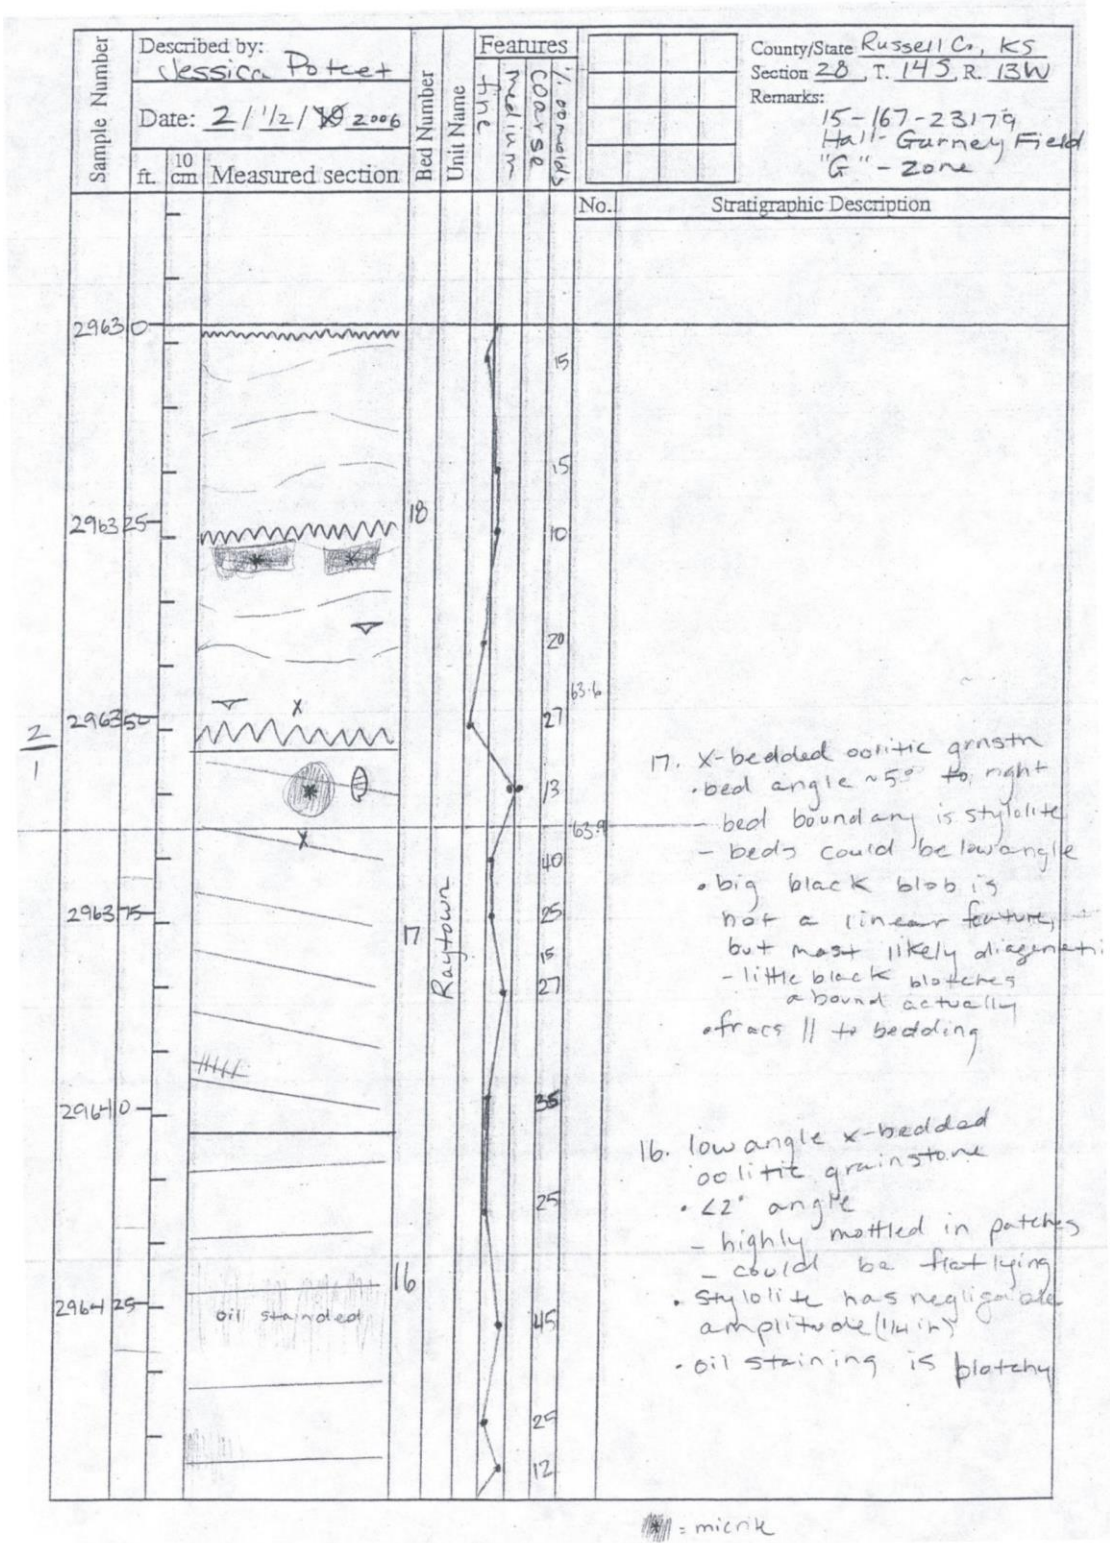 Sample Number
Described by:
Jessica Poteet
Date: 2/1/2/ 2006
ft.
10
cm
Measured section
Bed Number
Unit Name
Features
fine
medium
coarse
% oomolds
County/State Russell Co., KS
Section 28, T. 14S, R. 13W
Remarks:
15-167-23179
Hall-Gurney Field
"G" - zone
No.
Stratigraphic Description
2963 0
15
15
2963 25
18
10
20
63.6
2963 50
x
27
2
1
13
63.9
x
40
2963 75
25
17
Raytown
15
27
2964 0
35
25
16
2964 25
oil stainded
45
25
12
17. x-bedded oolitic grnstn
• bed angle ~5° to right
- bed boundary is stylolite
- beds could be low angle
• big black blob is
not a linear feature,
but most likely diageneti
- little black blotches
abound actually
• fracs || to bedding
16. low angle x-bedded
oolitic grainstone
• <2° angle
- highly mottled in patches
- could be flat lying
• stylolite has negligable
amplitude (1/4 in)
• oil staining is blotchy
* = micrite